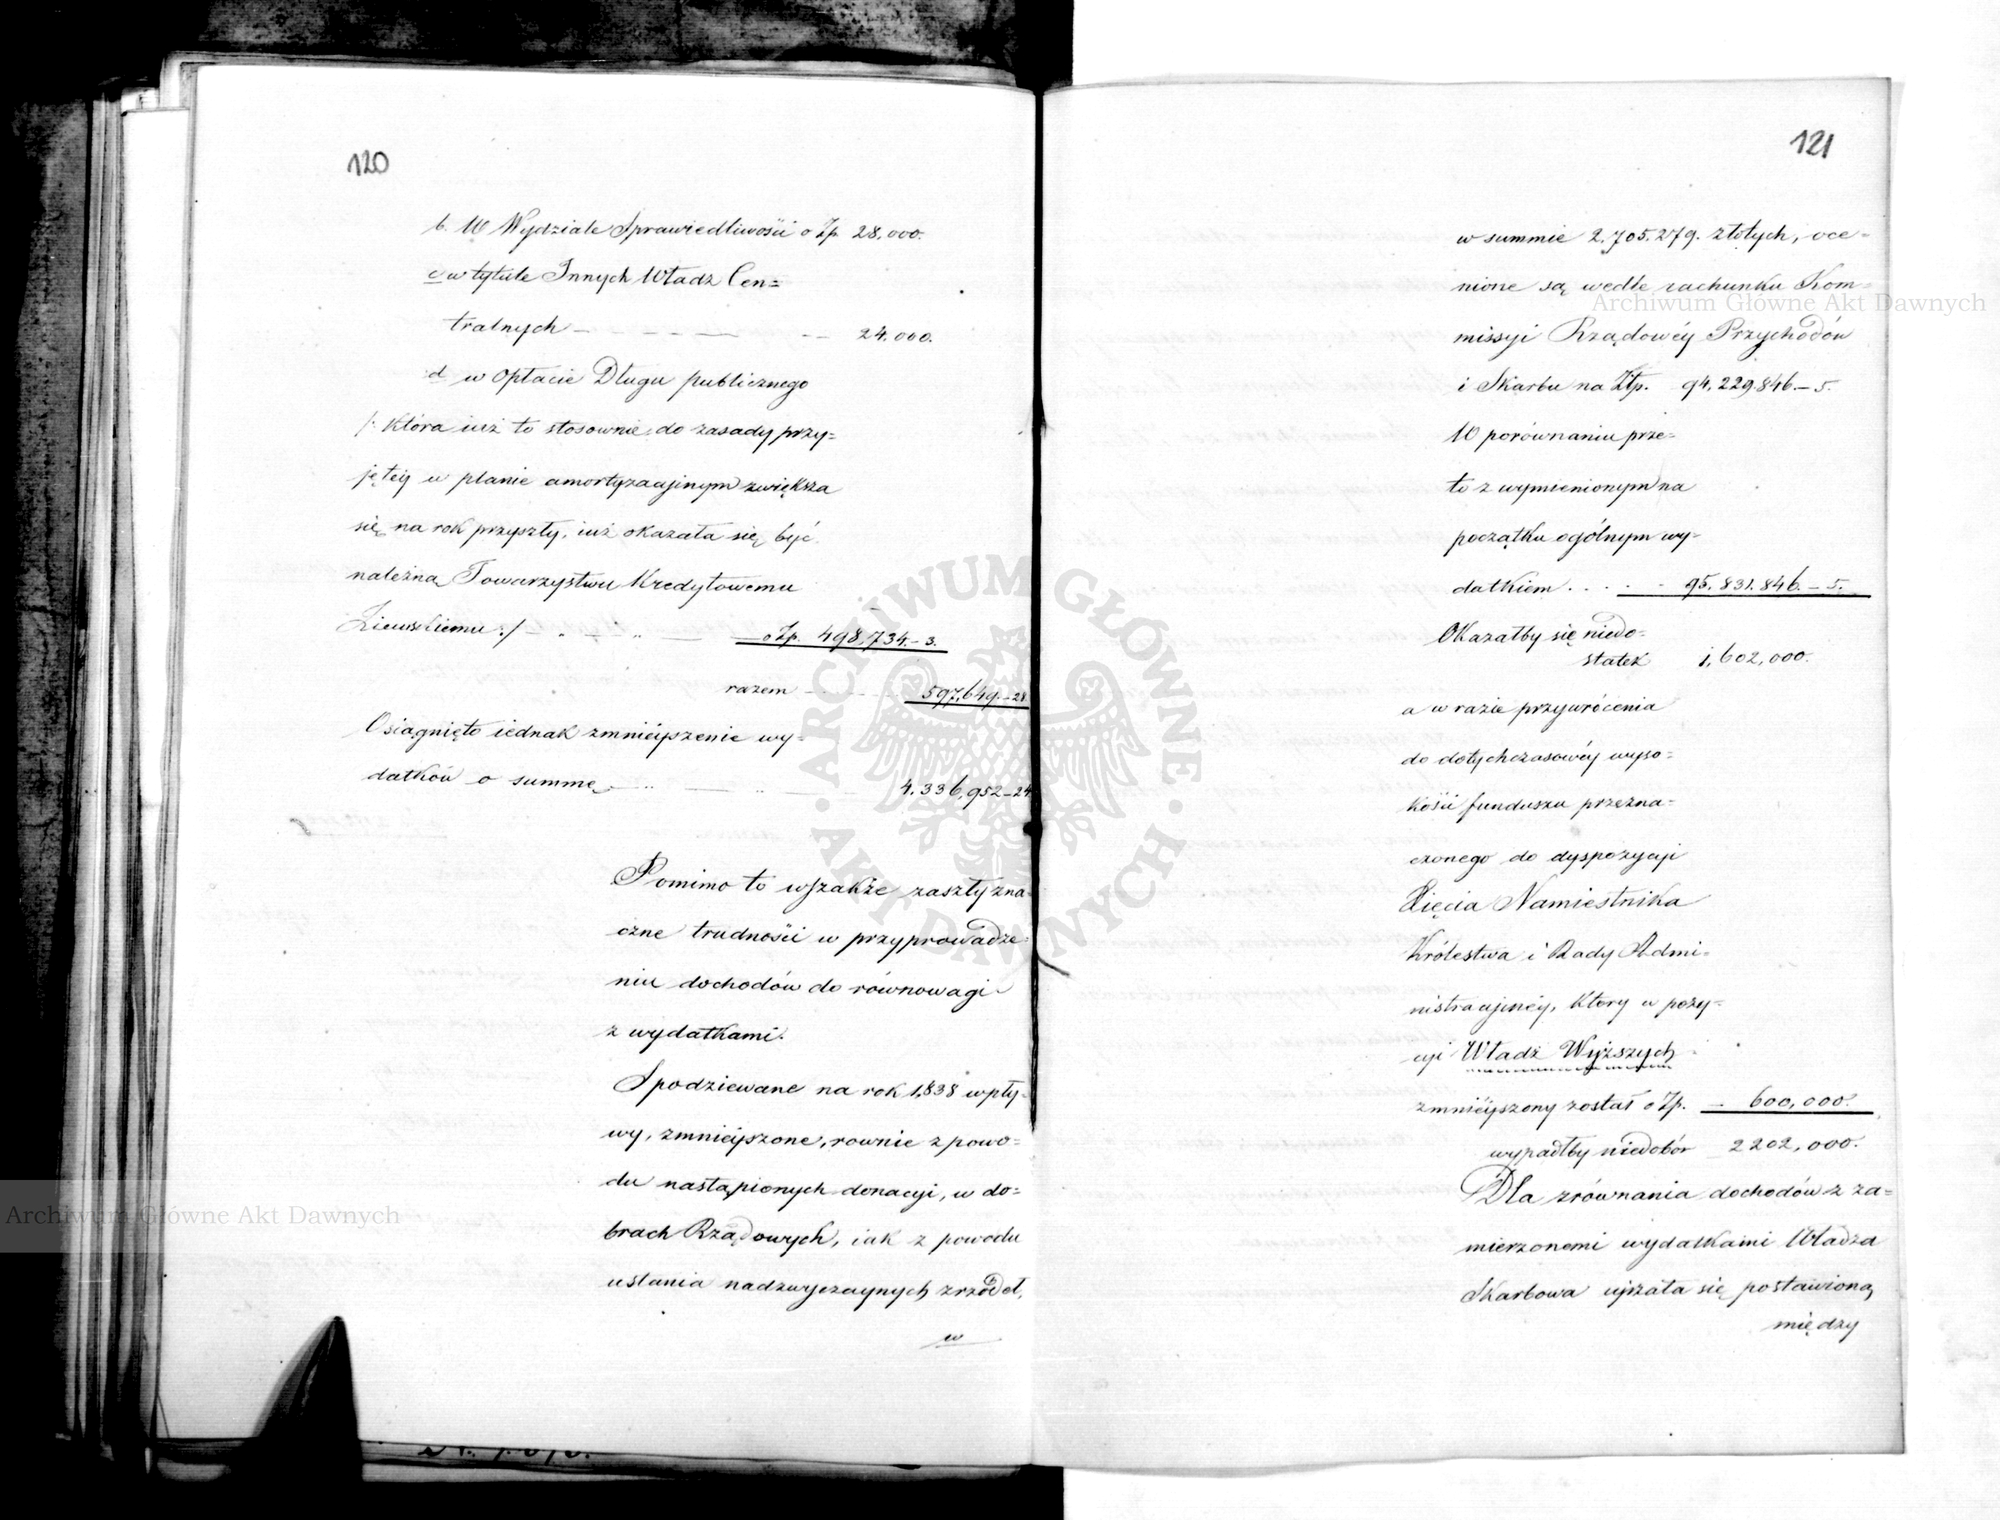 120
b. W Wydziale Sprawiedliwości o Zp. 28,000.
c w tytule Innych Władz Cen=
tralnych - - - - 24,000.
d w opłacie Długu publicznego
/: która iuż to stosownie do zasady przy=
jętéy w planie amortyzacyjnym zwiększa
się na rok przyszły, iuż okazała się być
należną Towarzystwu Kredytowemu
Ziemskiemu :/ - - - o Zp. 498,734.-3.
razem - - - 597,649.-28
Osiągnięto iednak zmnieyszenie wy=
datków o summę - - - 4.336,952-24
Pomimo to wszakże zaszły zna=
czne trudności w przyprowadze=
niu dochodów do równowagi
z wydatkami.
Spodziewane na rok 1,838 wpły=
wy, zmnieyszone, rownie z powo=
du nastąpionych donacyi, w do=
brach Rządowych, iak z powodu
ustania nadzwyczaynych zrzódeł,
w
121
w summie 2,705,279. złotych, oce=
nione są wedle rachunku Kom=
missyi Rządowéy Przychodów
i Skarbu na Złp. 94,229.846.-5.
W porównaniu prze=
to z wymienionym na
początku ogólnym wy=
datkiem . . . . 95.831.846.-5.
Okazałby się niedo=
statek 1,602,000.
a w razie przywrócenia
do dotychczasowéy wyso=
kości funduszu przezna=
czonego do dyspozycyi
Xięcia Namiestnika
Królestwa i Rady Admi=
nistracyinéy, który w pozy=
cyi Władz Wyższych
zmnieyszony został o Zp. - 600,000.
wypadłby niedobór 2202,000.
Dla zrównania dochodów z za=
mierzonemi wydatkami Władza
Skarbowa ujrzała się postawioną
między
Archiwum Główne Akt Dawnych
Archiwum Główne Akt Dawnych
ARCHIWUM GŁÓWNE AKT DAWNYCH